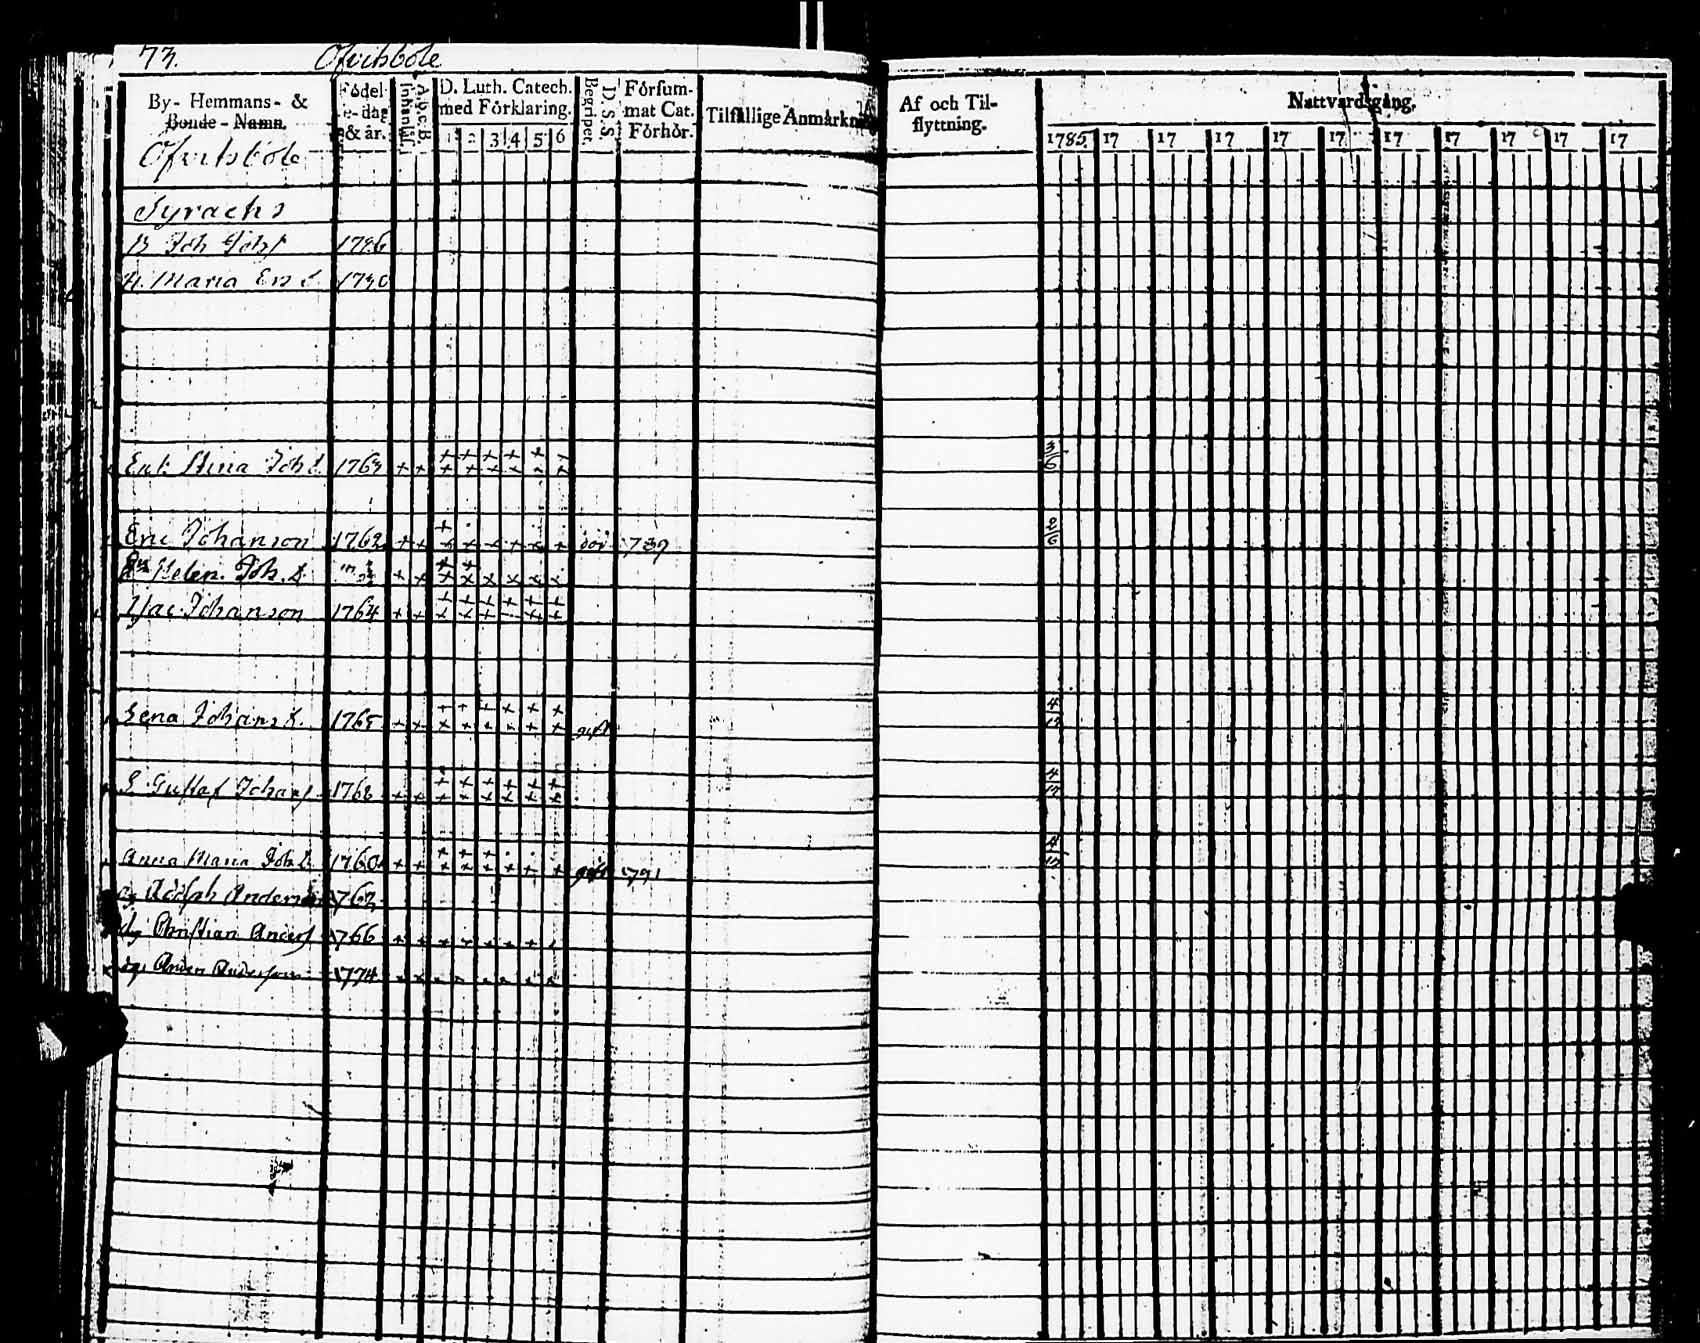 73. Öfvitsböle
By- Hemmans- & Bonde-Namn.
Födelse-dag & år.
Innanläs.
A.b.c.B.
D. Luth. Catech. med Förklaring.
1 2 3 4 5 6
Begriper.
D. S. S.
Försummat Cat. Förhör.
Tilfällige Anmärkn
Af och Tilflyttning.
Nattvardsgång.
1785. 17 17 17 17 17 17 17 17 17 17
Öfvitsböle
Syrachs
B Joh Johs 1726
H. Maria Ers d 1730
Stina Joh d. 1763 3/6
Eric Johanson 1762 död 789 2/6
Helen. Joh. d.
Jac Johanson 1764
Lena Johans d. 1765 gift 4/12
Gustaf Johans 1768 4/12
Anna Maria Joh d. 1760 gift 791 4/12
dg Adolph Anderson 1762
dg Christian Anders 1766
dg Anders Andersson 1774